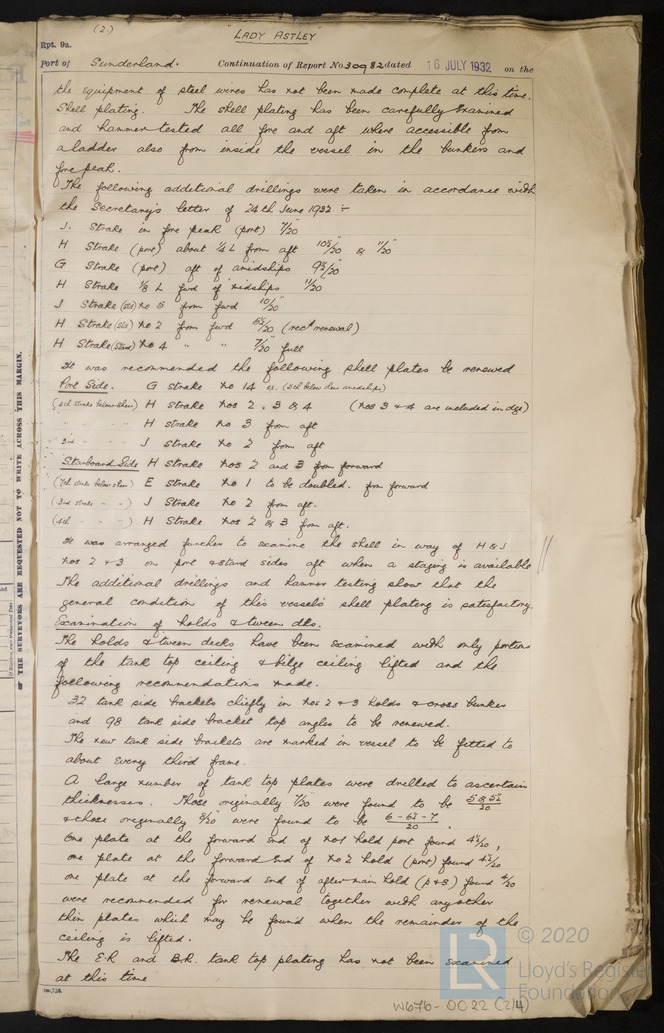 (2)
LADY ASTLEY
Rpt. 9a.
Port of Sunderland. Continuation of Report No 30982 dated 16 JULY 1932 on the
the equipment of steel wires has not been made complete at this time.
Shell plating. The shell plating has been carefully examined
and hammer tested all fore and aft where accessible from
a ladder also from inside the vessel in the bunkers and
fore peak.
The following additional drillings were taken in accordance with
the Secretary's letter of 24th June 1932 :-
J. Strake in fore peak (port) 7/20"
H Strake (port) about 1/4 L from aft 10½/20" & 11/20"
G Strake (port) aft of amidships 9½/20"
H Strake 1/8 L fwd of midships 11/20"
J Strake (Stb) No 5 from fwd 10/20"
H Strake (Stb) No 2 from fwd 5½/20 (recd renewal)
H Strake (Starbd) No 4 " " 7/20" full
It was recommended the following shell plates be renewed
Port Side. G strake No 14 (5th below sheer amidships)
(4th strake below sheer) H strake Nos 2, 3 & 4 (Nos 3 & 4 are included in dge)
" " H strake No 3 from aft
3rd " " J strake No 2 from aft
Starboard Side H strake Nos 2 and 3 from forward
(7th strake below sheer) E strake No 1 to be doubled. from forward
(3rd strake " ") J strake No 2 from aft.
(4th " " ") H Strake Nos 2 & 3 from aft.
It was arranged further to examine the shell in way of H & J
Nos 2 & 3 on port & starbd sides aft when a staging is available
The additional drillings and hammer testing show that the
general condition of this vessel's shell plating is satisfactory.
Examination of holds & tween dks.
The holds & tween decks have been examined with only portions
of the tank top ceiling & bilge ceiling lifted and the
following recommendations made.
32 tank side brackets chiefly in Nos 2 & 3 holds & cross bunker
and 98 tank side bracket top angles to be renewed.
The new tank side brackets are marked in vessel to be fitted to
about every third frame.
A large number of tank top plates were drilled to ascertain
thicknesses. Those originally 7/20 were found to be 5 & 5½/20
& those originally 8/20 were found to be 6 - 6½ - 7/20.
One plate at the forward end of No1 hold port found 4½/20,
one plate at the forward end of No 2 hold (port) found 4½/20
one plate at the forward end of after main hold (p & s) found 4/20
were recommended for renewal together with any other
thin plates which may be found when the remainder of the
ceiling is lifted.
The E.R and B.R. tank top plating has not been examined
at this time
THE SURVEYORS ARE REQUESTED NOT TO WRITE ACROSS THIS MARGIN.
W676-0022 (2/4)
LR
© 2020
Lloyd's Register
Foundation